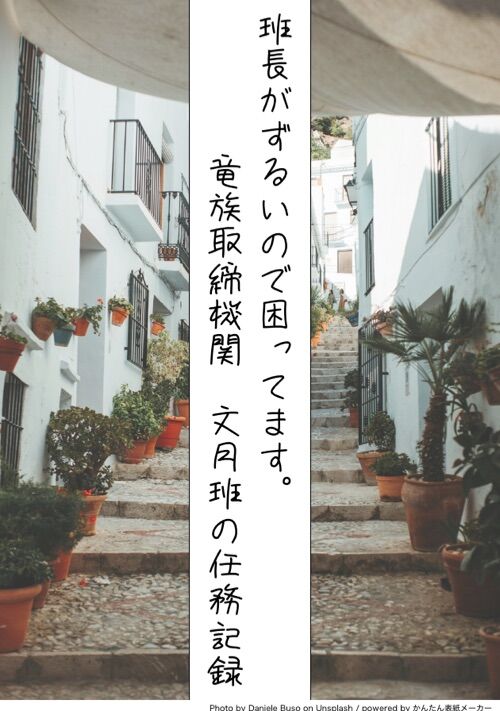 班長がずるいので困ってます。
竜族取締機関　文月班の任務記録
Photo by Daniele Buso on Unsplash / powered by かんたん表紙メーカー